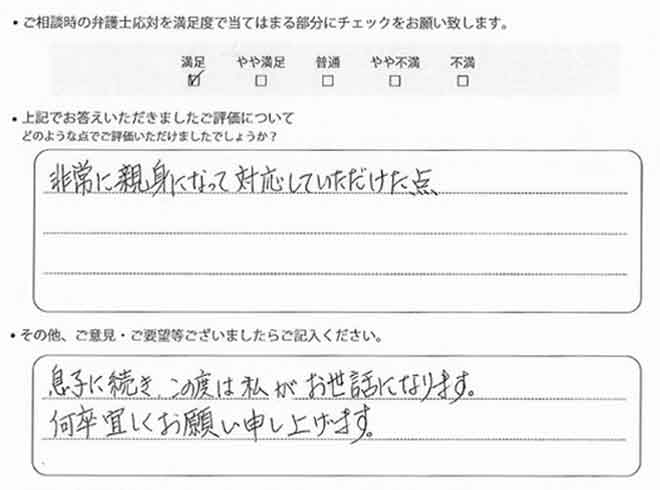 ・ご相談時の弁護士応対を満足度で当てはまる部分にチェックをお願い致します。
満足 やや満足 普通 やや不満 不満
☑ □ □ □ □
・上記でお答えいただきましたご評価について
どのような点でご評価いただけましたでしょうか？
非常に親身になって対応していただけた点、
・その他、ご意見・ご要望等ございましたらご記入ください。
息子に続き、この度は私がお世話になります。
何卒宜しくお願い申し上げます。